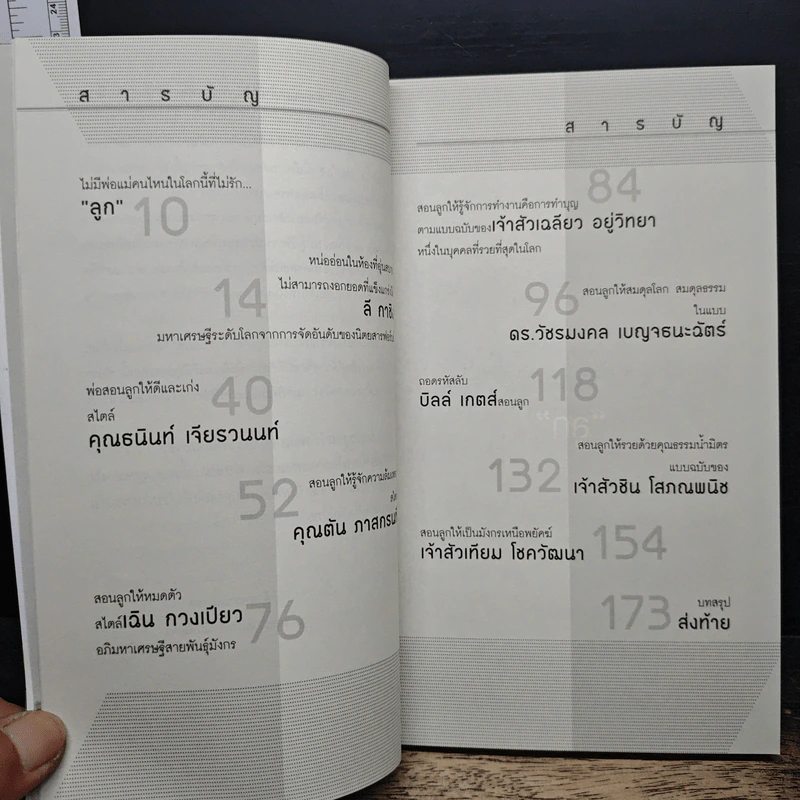 24
สารบัญ
ไม่มีพ่อแม่คนไหนในโลกนี้ที่ไม่รัก...
"ลูก" 10
หน่ออ่อนในห้องที่
ไม่สามารถงอกยอดที่แข็งแกร่ง
14
ลี กาชิง
มหาเศรษฐีระดับโลกจากการจัดอันดับของนิตยสาร
พ่อสอนลูกให้ดีและเก่ง
สไตล์ 40
คุณธนินท์ เจียรวนนท์
สอนลูกให้รู้จักความ
52
คุณตัน ภาสกรนที
สอนลูกให้หมดตัว
สไตล์เฉิน กวงเปียว 76
อภิมหาเศรษฐีสายพันธุ์มังกร
สารบัญ
84
สอนลูกให้รู้จักการทำงานคือการทำบุญ
ตามแบบฉบับของเจ้าสัวเฉลียว อยู่วิทยา
หนึ่งในบุคคลที่รวยที่สุดในโลก
96 สอนลูกให้สมดุลโลก สมดุลธรรม
ในแบบ
ดร.วัชรมงคล เบญจธนะฉัตร์
ถอดรหัสลับ 118
บิลล์ เกตส์สอนลูก
สอนลูกให้รวยด้วยคุณธรรมน้ำมิตร
แบบฉบับของ
132 เจ้าสัวชิน โสภณพนิช
สอนลูกให้เป็นมังกรเหนือพยัคฆ์
เจ้าสัวเทียม โชควัฒนา 154
บทสรุป
173 ส่งท้าย